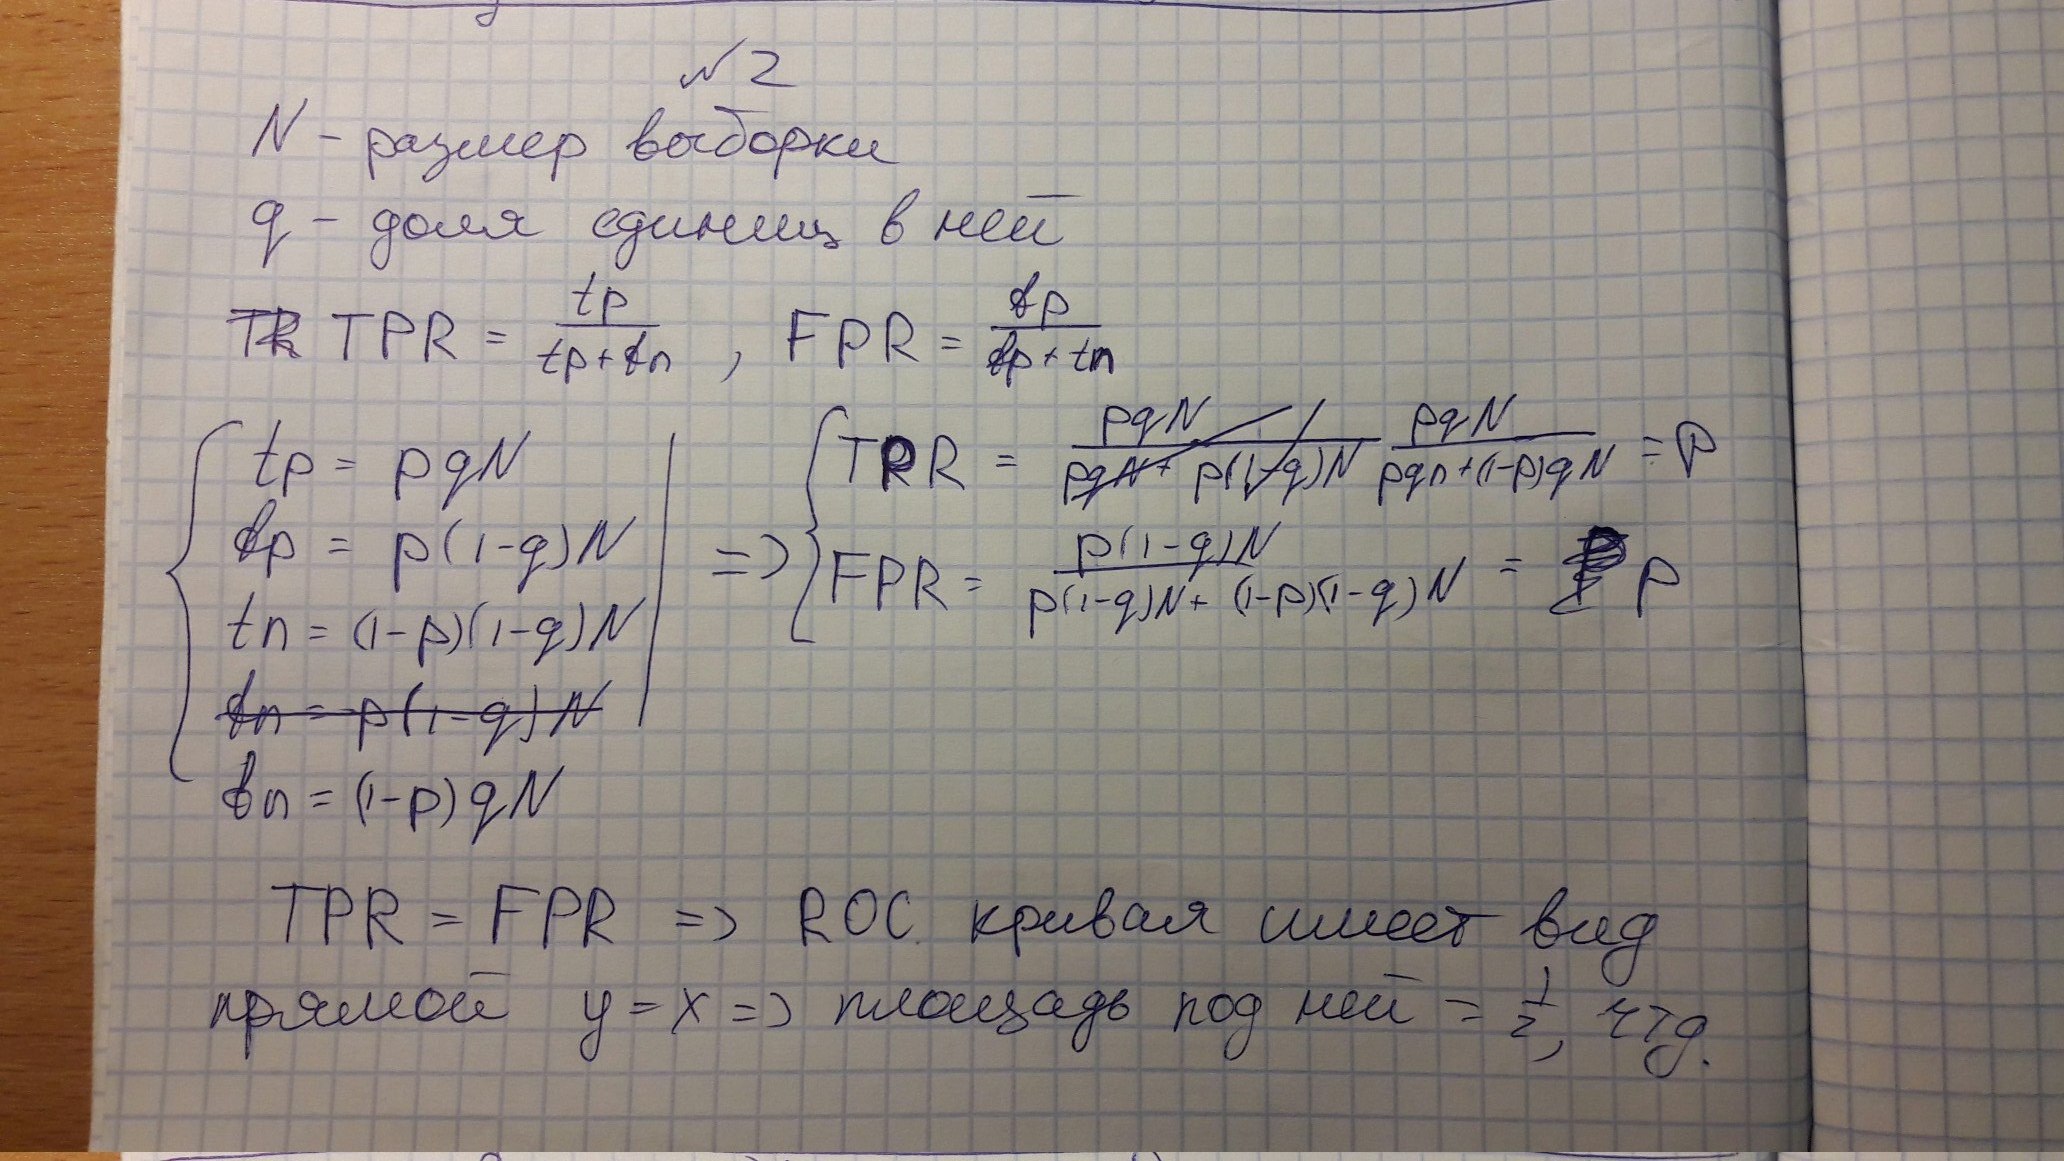 № 2
N - размер выборки
q - доля единиц в ней
TPR = tp / (tp + fn), FPR = fp / (fp + tn)
tp = pqN
fp = p(1-q)N
tn = (1-p)(1-q)N
fn = p(1-q)N
fn = (1-p)qN
=> TPR = pqN / (pqN + p(1-q)N) pqN / (pqn + (1-p)qN) = p
FPR = p(1-q)N / (p(1-q)N + (1-p)(1-q)N) = p
TPR = FPR => ROC кривая имеет вид
прямой y = x => площадь под ней = 1/2, чтд.